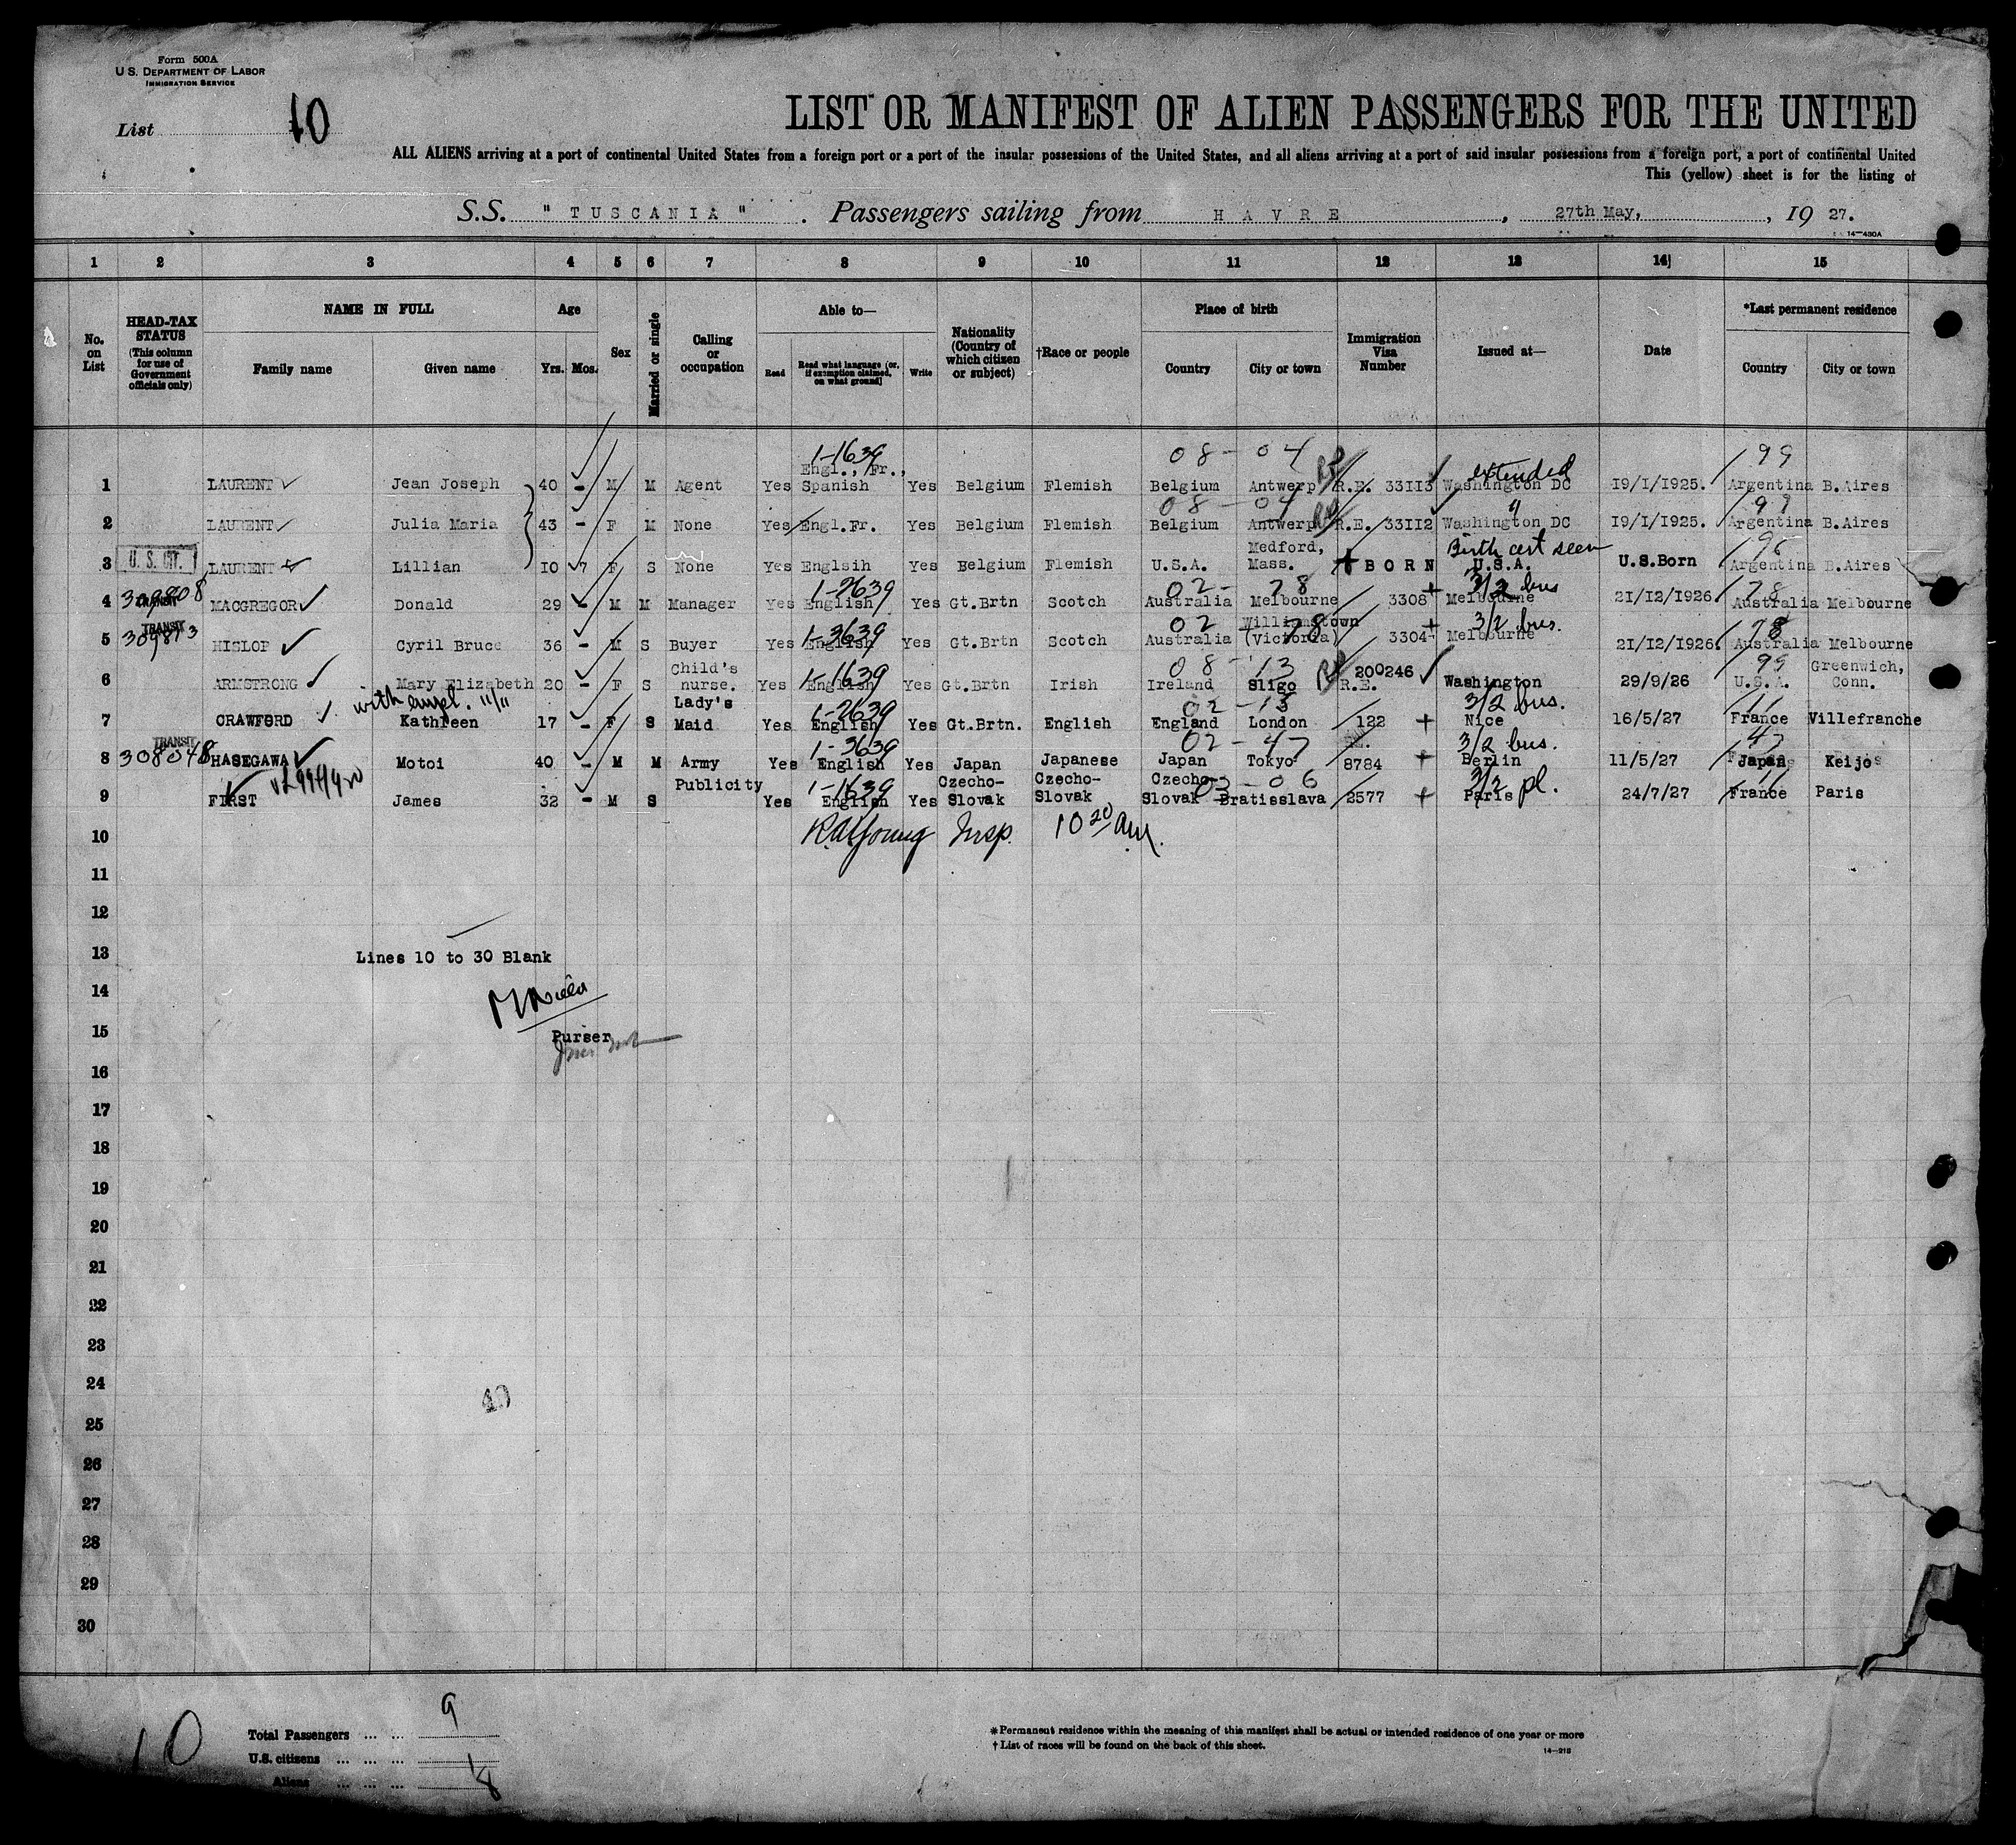 Form 500A
U.S. DEPARTMENT OF LABOR
IMMIGRATION SERVICE
List 10
LIST OR MANIFEST OF ALIEN PASSENGERS FOR THE UNITED
ALL ALIENS arriving at a port of continental United States from a foreign port or a port of the insular possessions of the United States, and all aliens arriving at a port of said insular possessions from a foreign port, a port of continental United
This (yellow) sheet is for the listing of
S.S. "TUSCANIA". Passengers sailing from HAVRE, 27th May, 1927.
14—430A
1 2 3 4 5 6 7 8 9 10 11 12 13 14 15
No. on List
HEAD-TAX STATUS (This column for use of Government officials only)
NAME IN FULL
Family name
Given name
Age
Yrs. Mos.
Sex
Married or single
Calling or occupation
Able to—
Read
Read what language (or, if exemption claimed, on what ground)
Write
Nationality (Country of which citizen or subject)
†Race or people
Place of birth
Country
City or town
Immigration Visa Number
Issued at—
Date
*Last permanent residence
Country
City or town
1-1639 08-04 extended 99
1 LAURENT Jean Joseph 40 - M M Agent Yes Engl., Fr., Spanish Yes Belgium Flemish Belgium Antwerp R.E. 33113 Washington DC 19/1/1925. Argentina B.Aires
08-04 99
2 LAURENT Julia Maria 43 - F M None Yes Engl.Fr. Yes Belgium Flemish Belgium Antwerp R.E. 33112 Washington DC 19/1/1925. Argentina B.Aires
U. S. CIT. Birth cert seen
3 LAURENT Lillian 10 7 F S None Yes Englsih Yes Belgium Flemish U.S.A. Medford, Mass. + BORN U.S.A. U.S.Born Argentina B.Aires
1-2639 02-78 3/2 bus 78
4 MACGREGOR Donald 29 - M M Manager Yes English Yes Gt.Brtn Scotch Australia Melbourne 3308 + Melbourne 21/12/1926 Australia Melbourne
TRANSIT 1-3639 02-78 3/2 bus. 78
5 HISLOP Cyril Bruce 36 - M S Buyer Yes English Yes Gt.Brtn Scotch Australia Williamstown (Victoria) 3304 + Melbourne 21/12/1926. Australia Melbourne
1-1639 08-13 99
6 ARMSTRONG Mary Elizabeth 20 - F S Child's nurse. Yes English Yes Gt.Brtn Irish Ireland Sligo 200246 R.E. Washington 29/9/26 U.S.A. Greenwich, Conn.
with empl. 1-2639 02-13 3/2 bus. 11
7 CRAWFORD Kathleen 17 - F S Lady's Maid Yes English Yes Gt.Brtn. English England London 122 + Nice 16/5/27 France Villefranche
TRANSIT 308048 1-3639 02-47 3/2 bus. 47
8 HASEGAWA Motoi 40 - M M Army Yes English Yes Japan Japanese Japan Tokyo 8784 + Berlin 11/5/27 Japan Keijo
1-1639 03-06 3/2 pl. 11
9 FIRST James 32 - M S Publicity Yes English Yes Czecho-Slovak Czecho-Slovak Czecho-Slovak Bratisslava 2577 + Paris 24/7/27 France Paris
10 Insp. 10 20 AM.
11
12
13 Lines 10 to 30 Blank
14
15 Purser
16
17
18
19
20
21
22
23
24
25
26
27
28
29
30
10
Total Passengers ... ... 9
U.S. citizens ... ... ... 1
Aliens ... ... ... 8
*Permanent residence within the meaning of this manifest shall be actual or intended residence of one year or more
†List of races will be found on the back of this sheet.
14—218